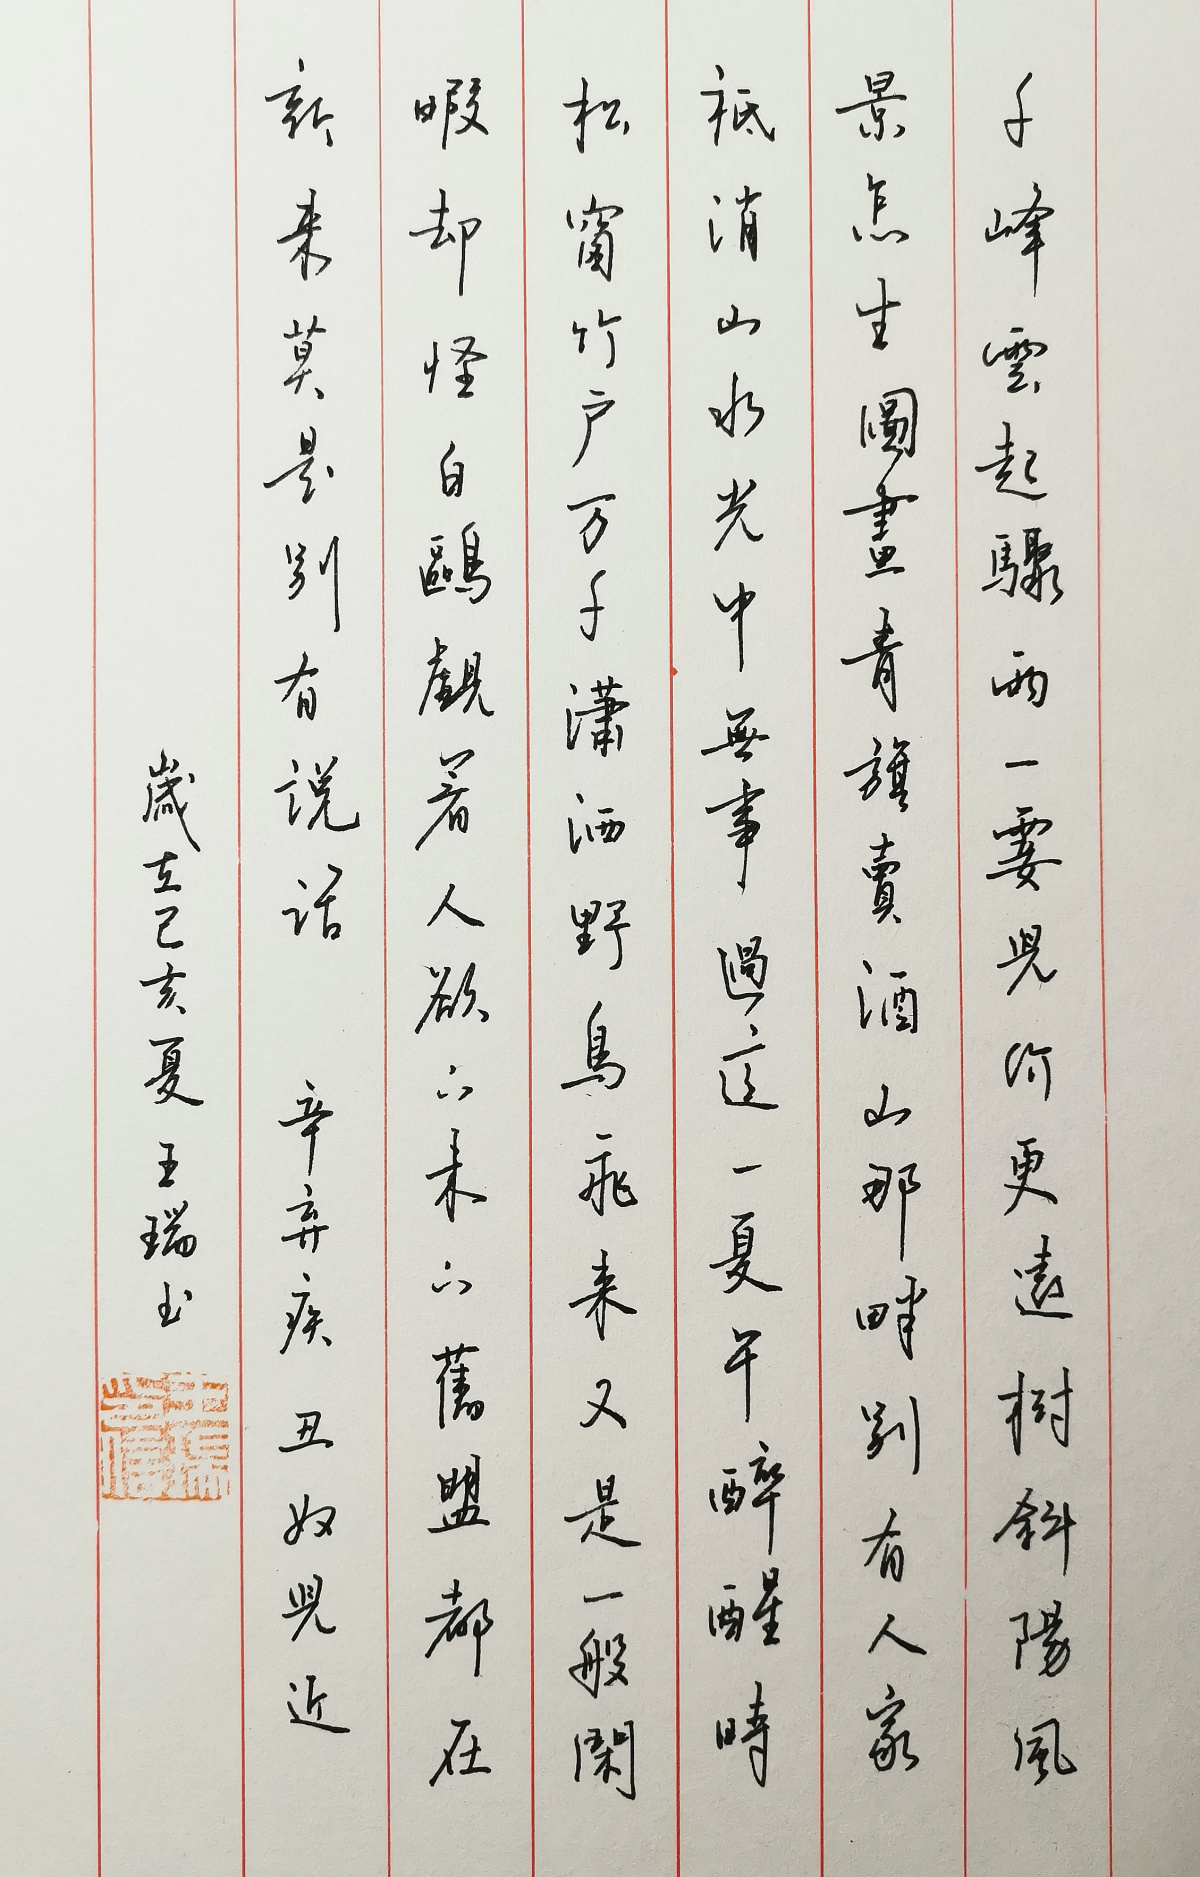 千峰雲起驟雨一霎兒价更遠樹斜陽風
景怎生圖畫青旗賣酒山那畔別有人家
祗消山水光中無事過這一夏午醉醒時
松窗竹户万千瀟洒野鳥飛来又是一般閑
暇却怪白鷗覷着人欲下未下舊盟都在
新来莫是別有説話 辛弃疾丑奴兒近
歲在己亥夏王瑞书